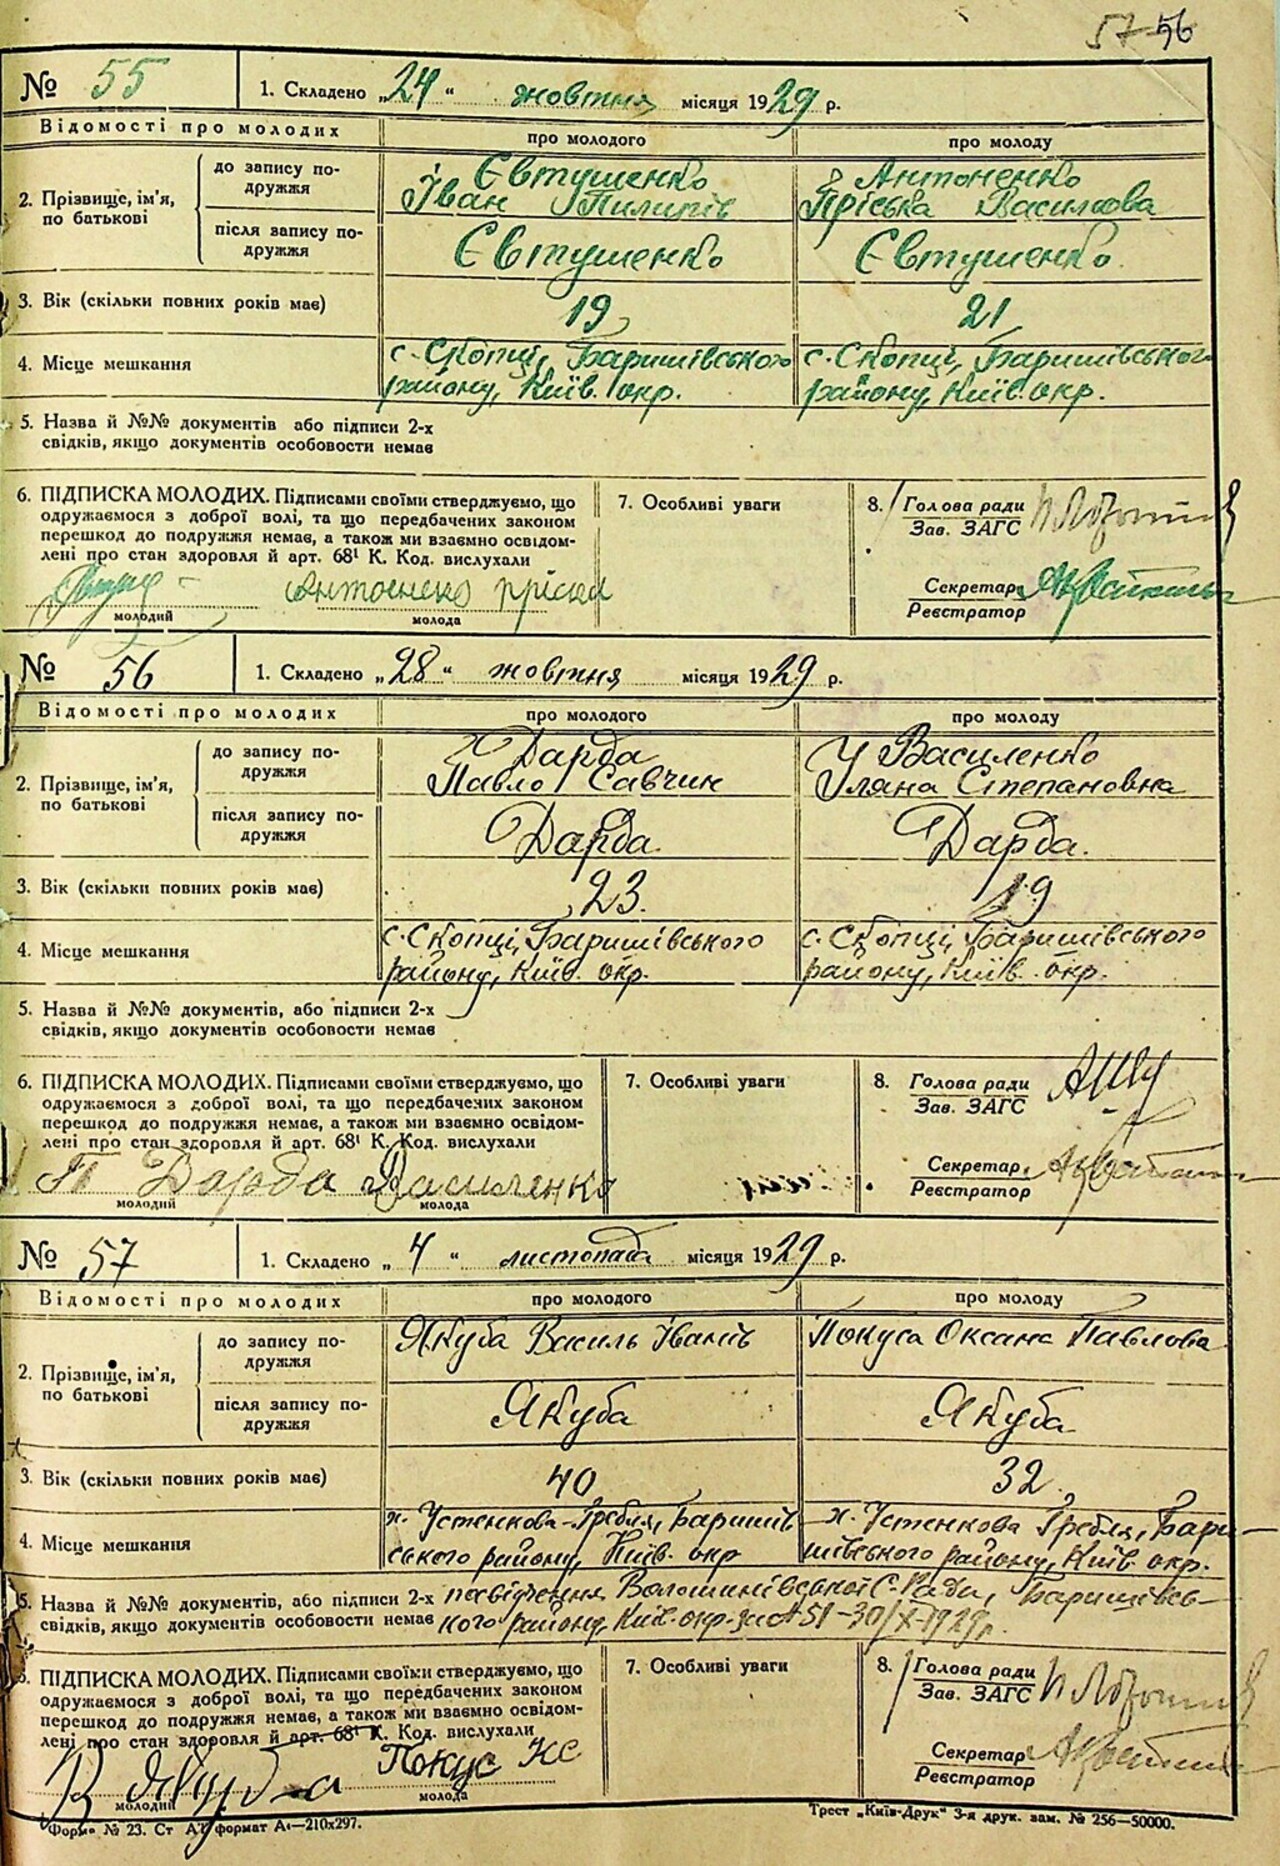 57 56
№ 55 1. Складено „24“ жовтня місяця 1929 р.
Відомості про молодих про молодого про молоду
2. Прізвище, ім'я, по батькові
до запису по-
дружжя
Євтушенко
Іван Пилипів
Антоненко
Пріська Василова
після запису по-
дружжя
Євтушенко Євтушенко
3. Вік (скільки повних років має) 19 21
4. Місце мешкання
с. Скопці, Баришівського
району, Київ. окр.
с. Скопці, Баришівського
району, Київ. окр.
5. Назва й №№ документів або підписи 2-х
свідків, якщо документів особовости немає
6. ПІДПИСКА МОЛОДИХ. Підписами своїми стверджуємо, що
одружаємося з доброї волі, та що передбачених законом
перешкод до подружжя немає, а також ми взаємно освідом-
лені про стан здоровля й арт. 68¹ К. Код. вислухали
Антоненко Пріска
молодий молода
7. Особливі уваги
8. Голова ради
Зав. ЗАГС
Секретар
Реєстратор
№ 56 1. Складено „28“ жовтня місяця 1929 р.
Відомості про молодих про молодого про молоду
2. Прізвище, ім'я,
по батькові
до запису по-
дружжя
Дарда
Павло Савчин
Василенко
Уляна Степановна
після запису по-
дружжя
Дарда Дарда.
3. Вік (скільки повних років має) 23. 19
4. Місце мешкання
с. Скопці, Баришівського
району, Київ. окр.
с. Скопці, Баришівського
району, Київ. окр.
5. Назва й №№ документів, або підписи 2-х
свідків, якщо документів особовости немає
6. ПІДПИСКА МОЛОДИХ. Підписами своїми стверджуємо, що
одружаємося з доброї волі, та що передбачених законом
перешкод до подружжя немає, а також ми взаємно освідом-
лені про стан здоровля й арт. 68¹ К. Код. вислухали
П Дарда Василенко
молодий молода
7. Особливі уваги
8. Голова ради
Зав. ЗАГС
Секретар
Реєстратор
№ 57 1. Складено „4“ листопада місяця 1929 р.
Відомості про молодих про молодого про молоду
2. Прізвище, ім'я,
по батькові
до запису по-
дружжя
Якуба Василь Іванів Покуса Оксана Павлова
після запису по-
дружжя
Якуба Якуба
3. Вік (скільки повних років має) 40 32
4. Місце мешкання
х. Устенкова-Гребля, Баришів-
ського району, Київ. окр
х. Устенкова Гребля, Бари-
шівського району, Київ. окр.
5. Назва й №№ документів, або підписи 2-х посвідчення Волошинівської С-Ради, Баришівсь-
свідків, якщо документів особовости немає кого району, Київ. окр. за № 51-30/X-1929 р.
6. ПІДПИСКА МОЛОДИХ. Підписами своїми стверджуємо, що
одружаємося з доброї волі, та що передбачених законом
перешкод до подружжя немає, а також ми взаємно освідом-
лені про стан здоровля й арт. 68¹ К. Код. вислухали
В Якуба Покус КС
молодий молода
7. Особливі уваги
8. Голова ради
Зав. ЗАГС
Секретар
Реєстратор
Форма № 23. Ст А4 формат А4—210х297.
Трест „Київ-Друк“ 3-я друк. зам. № 256—50000.